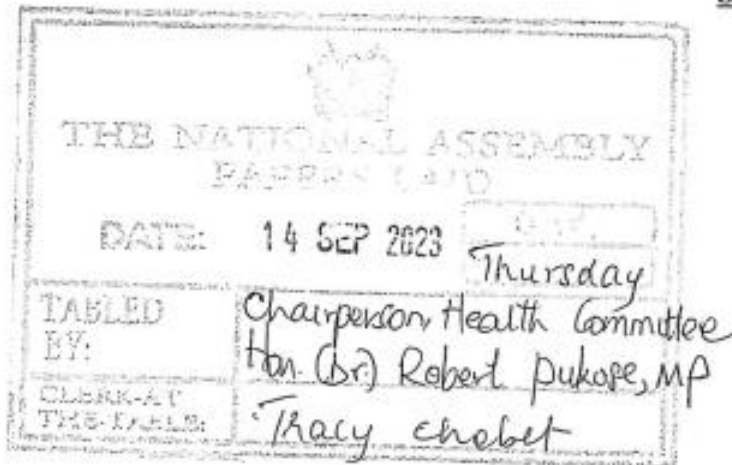 THE NATIONAL ASSEMBLY
PAPERS LAID
DATE: 14 SEP 2023
DAY.
Thursday
TABLED BY:
Chairperson, Health Committee
Hon. (Dr.) Robert Pukose, MP
CLERK-AT THE-TABLE:
Tracy Chebet